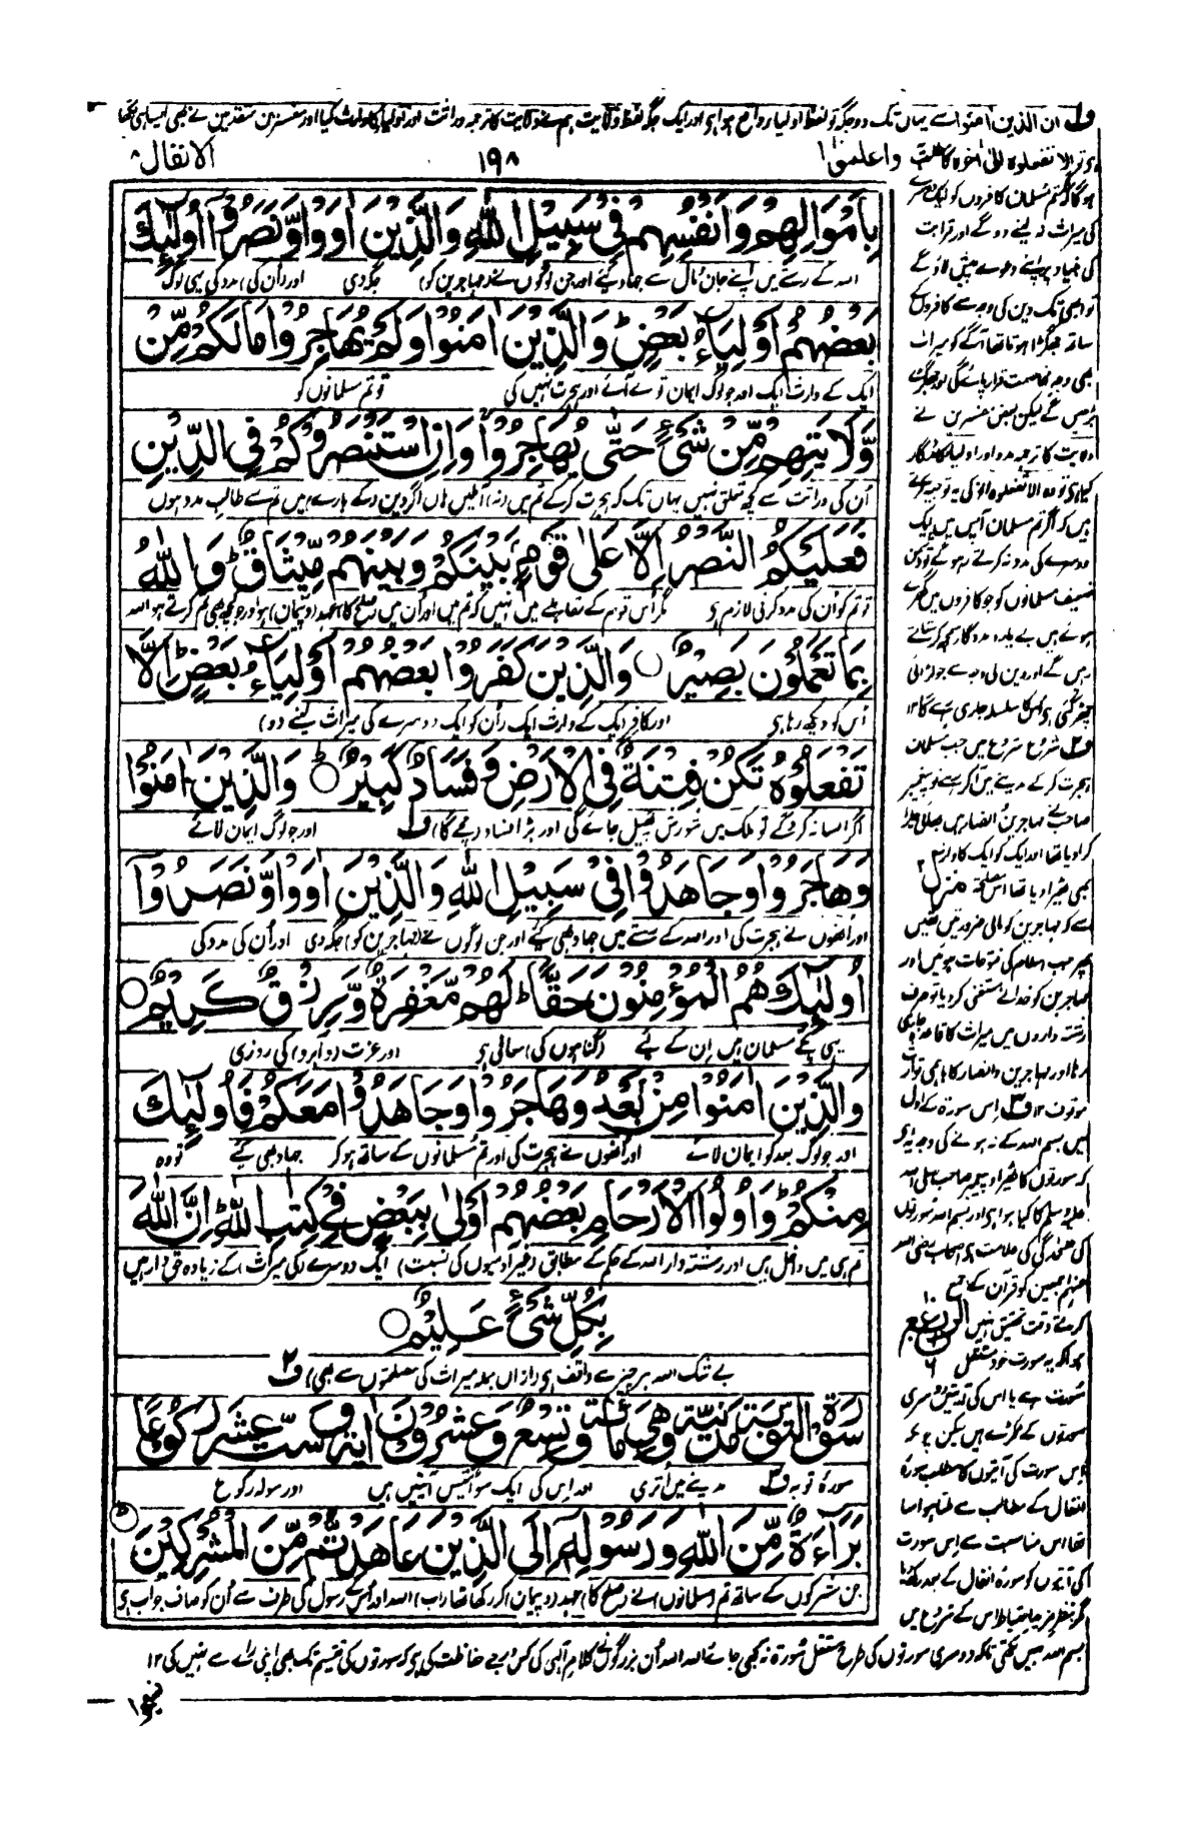 ف ان الذین اٰمنوا سے یہاں تک دو جگہ تو لفظ اولیا واقع ہوا ہی اور ایک جگہ لفظ ولایت ہم نے ولایت کا ترجمہ وراثت اور اولیا کا وارث کیا اور مفسرین متقدمین نے بھی ایسا ہی لکھا
واعلموا۱۰
۱۹۸
الانفال ۸
بِاَمْوَالِهِمْ وَاَنْفُسِهِمْ فِیْ سَبِیْلِ اللّٰهِ وَالَّذِیْنَ اٰوَوْا وَّنَصَرُوْۤا اُولٰٓئِكَ
اللہ کے رستے میں اپنے جان و مال سے جہاد کیے اور جن لوگوں نے (مہاجرین کو) جگہ دی اور (ان کی) مدد کی یہی لوگ
بَعْضُهُمْ اَوْلِیَآءُ بَعْضٍ ؕ وَالَّذِیْنَ اٰمَنُوْا وَلَمْ یُهَاجِرُوْا مَا لَكُمْ مِّنْ
ایک کے وارث ایک اور جو لوگ ایمان تو لے آئے اور ہجرت نہیں کی تو تم مسلمانوں کو
وَّلَایَتِهِمْ مِّنْ شَیْءٍ حَتّٰی یُهَاجِرُوْا ۚ وَاِنِ اسْتَنْصَرُوْكُمْ فِی الدِّیْنِ
اُن کی وراثت سے کچھ تعلق نہیں یہاں تک کہ ہجرت کرکے تم میں (نہ) آملیں ہاں اگر دین (کے بارے) میں تم سے طالب مدد ہوں
فَعَلَیْكُمُ النَّصْرُ اِلَّا عَلٰی قَوْمٍۭ بَیْنَكُمْ وَبَیْنَهُمْ مِّیْثَاقٌ ؕ وَاللّٰهُ
تو تم کو اُن کی مدد کرنی لازم ہی مگر اُس قوم کے مقابلے میں نہیں کہ تم میں اور اُن میں (صلح کا) عہد (و پیمان) ہو اور جو کچھ بھی تم کرتے ہو اللہ
بِمَا تَعْمَلُوْنَ بَصِیْرٌ ○ وَالَّذِیْنَ كَفَرُوْا بَعْضُهُمْ اَوْلِیَآءُ بَعْضٍ ؕ اِلَّا
اُس کو دیکھ رہا ہی اور کافر ایک کے وارث ایک (اُن کو ایک دوسرے کی میراث لینے دو)
تَفْعَلُوْهُ تَكُنْ فِتْنَةٌ فِی الْاَرْضِ وَفَسَادٌ كَبِیْرٌ ○ وَالَّذِیْنَ اٰمَنُوْا
اگر ایسا نہ کروگے تو ملک میں شورش پھیل جائے گی اور بڑا فساد (مچے گا) ف اور جو لوگ ایمان لائے
وَهَاجَرُوْا وَجَاهَدُوْا فِیْ سَبِیْلِ اللّٰهِ وَالَّذِیْنَ اٰوَوْا وَّنَصَرُوْۤا
اور اُنھوں نے ہجرت کی اور اللہ کے رستے میں جہاد بھی کیے اور جن لوگوں نے (مہاجرین کو) جگہ دی اور اُن کی مدد کی
اُولٰٓئِكَ هُمُ الْمُؤْمِنُوْنَ حَقًّا ؕ لَهُمْ مَّغْفِرَةٌ وَّرِزْقٌ كَرِیْمٌ ○
یہی پکے مسلمان ہیں اِن کے لیے (گناہوں کی) معافی ہی اور عزت (و آبرو) کی روزی
وَالَّذِیْنَ اٰمَنُوْا مِنْۢ بَعْدُ وَهَاجَرُوْا وَجَاهَدُوْا مَعَكُمْ فَاُولٰٓئِكَ
اور جو لوگ بعد کو ایمان لائے اور اُنھوں نے ہجرت کی اور تم مسلمانوں کے ساتھ ہو کر جہاد بھی کیے تو وہ
مِنْكُمْ ؕ وَاُولُوا الْاَرْحَامِ بَعْضُهُمْ اَوْلٰی بِبَعْضٍ فِیْ كِتٰبِ اللّٰهِ ؕ اِنَّ اللّٰهَ
تم ہی میں داخل ہیں اور رشتہ دار اللہ کے حکم کے مطابق (غیر آدمیوں کی نسبت) ایک دوسرے (کی میراث) کے زیادہ حق دار ہیں
بِكُلِّ شَیْءٍ عَلِیْمٌ ○
بے شک اللہ ہر چیز سے واقف ہی (ازاں جملہ میراث کی مصلحتوں سے بھی) ف۲
سُوْرَةُ التَّوْبَةِ مَدَنِیَّةٌ وَّهِیَ مِائَةٌ وَّتِسْعٌ وَّعِشْرُوْنَ اٰیَةً وَّسِتَّ عَشَرَ رُكُوْعًا
سورۂ توبہ ف۳ مدینے میں اُتری اور اِس کی ایک سو اُنتیس آیتیں ہیں اور سولہ رکوع
بَرَآءَةٌ مِّنَ اللّٰهِ وَرَسُوْلِهٖۤ اِلَی الَّذِیْنَ عَاهَدْتُّمْ مِّنَ الْمُشْرِكِیْنَ
جن مشرکوں کے ساتھ تم (مسلمانوں) نے (صلح کا) عہد (و پیمان) کر رکھا تھا (اب) اللہ اور اُس کے رسول کی طرف سے اُن کو صاف جواب ہی
ہوگا کہ تم مسلمان کافروں کو
کی میراث نہ لینے دو گے اور قرابت
کی بنیاد پر اپنے دعوے پیش لاؤ گے
تو ابھی تک دین کی وجہ سے کافروں کے
ساتھ جھگڑا ہوتا تھا آگے کو میراث
بڑھیں گے لیکن بعض مفسرین نے
ولایت کا ترجمہ مدد اور اولیا کا مددگار
ہیں کہ اگر تم مسلمان آپس میں ایک
دوسرے کی مدد نہ کرتے رہو گے تو اُن
ضعیف مسلمانوں کو جو کافروں میں گھرے
ہوئے ہیں بے یار و مددگار سمجھ کر ستاتے
رہیں گے اور دین کی وجہ سے جو لڑائی
چھڑ گئی ہی اُس کا سلسلہ جاری رہے گا۱۲
ف۲ شروع شروع میں جب مسلمان
ہجرت کرکے مدینے میں آکر بسے تو پیغمبر
صاحب نے مہاجرین و انصار میں بھائی چارا
کرا دیا تھا اور ایک کو ایک کا وارث
بھی ٹھیرا دیا تھا
منزل۲
سے کہ مہاجرین کو مالی ضرورتیں تھیں
پھر جب اسلام کی فتوحات ہوئیں اور
مہاجرین کو خدا نے مستغنی کر دیا تو صرف
رشتہ داروں میں میراث کا قاعدہ جاری
رہا اور مہاجرین و انصار کا باہمی توارث
موقوف ۱۲ ف۳ اِس سورۃ کے اول
میں بسم اللہ کے نہ ہونے کی وجہ یہ ہی
کہ سورتوں کا ٹھیراؤ پیغمبر صاحب صلی اللہ
علیہ وسلم کا کیا ہوا ہی اور بسم اللہ سورتوں
کی علیحدگی کی علامت ہی اصحاب رضی اللہ
عنہم اجمعین کو قرآن کے جمع
کرتے وقت تحقیق نہیں
ہوا کہ یہ سورت خود مستقل
الربع
۱۰
۶
سورت ہے یا اس کی آیتیں دوسری
سورتوں کے ٹکڑے ہیں لیکن چونکہ
اِس سورت کی آیتوں کا مطلب سورۂ
انفال کے مطالب سے ملتا ہوا سا
تھا اس مناسبت سے اِس سورت
کی آیتوں کو سورۂ انفال کے بعد رکھا
مگر بنظر مزید احتیاط اس کے شروع میں
بسم اللہ نہیں لکھی تاکہ دوسری سورتوں کی طرح مستقل سورۃ نہ سمجھی جائے اللہ اللہ اُن بزرگوں نے کلام الٰہی کی کس درجے حفاظت کی ہی کہ سورتوں کی تقسیم تک بھی اپنی رائے سے نہیں کی ۱۲